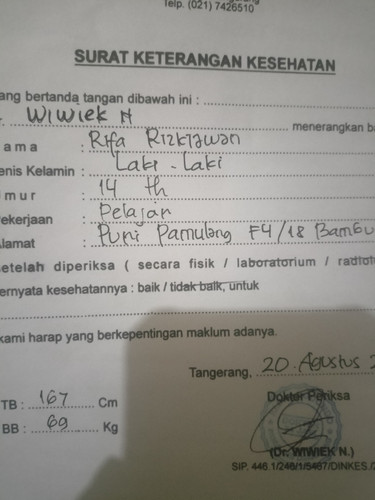 Telp. (021) 7426510
SURAT KETERANGAN KESEHATAN
ang bertanda tangan dibawah ini :
Wiwiek N menerangkan ba
ama : Rifa Rizkiawan
enis Kelamin : Laki - Laki
mur : 14 th
ekerjaan : Pelajar
lamat : Puri Pamulang F4/18 Bambu
etelah diperiksa ( secara fisik / laboratorium / radiolo
ernyata kesehatannya : baik / tidak baik, untuk
kami harap yang berkepentingan maklum adanya.
Tangerang, 20 Agustus 2
TB : 167 Cm
Dokter Periksa
BB : 69 Kg
(Dr. WIWIEK N.)
SIP. 446.1/246/1/5467/DINKES./2